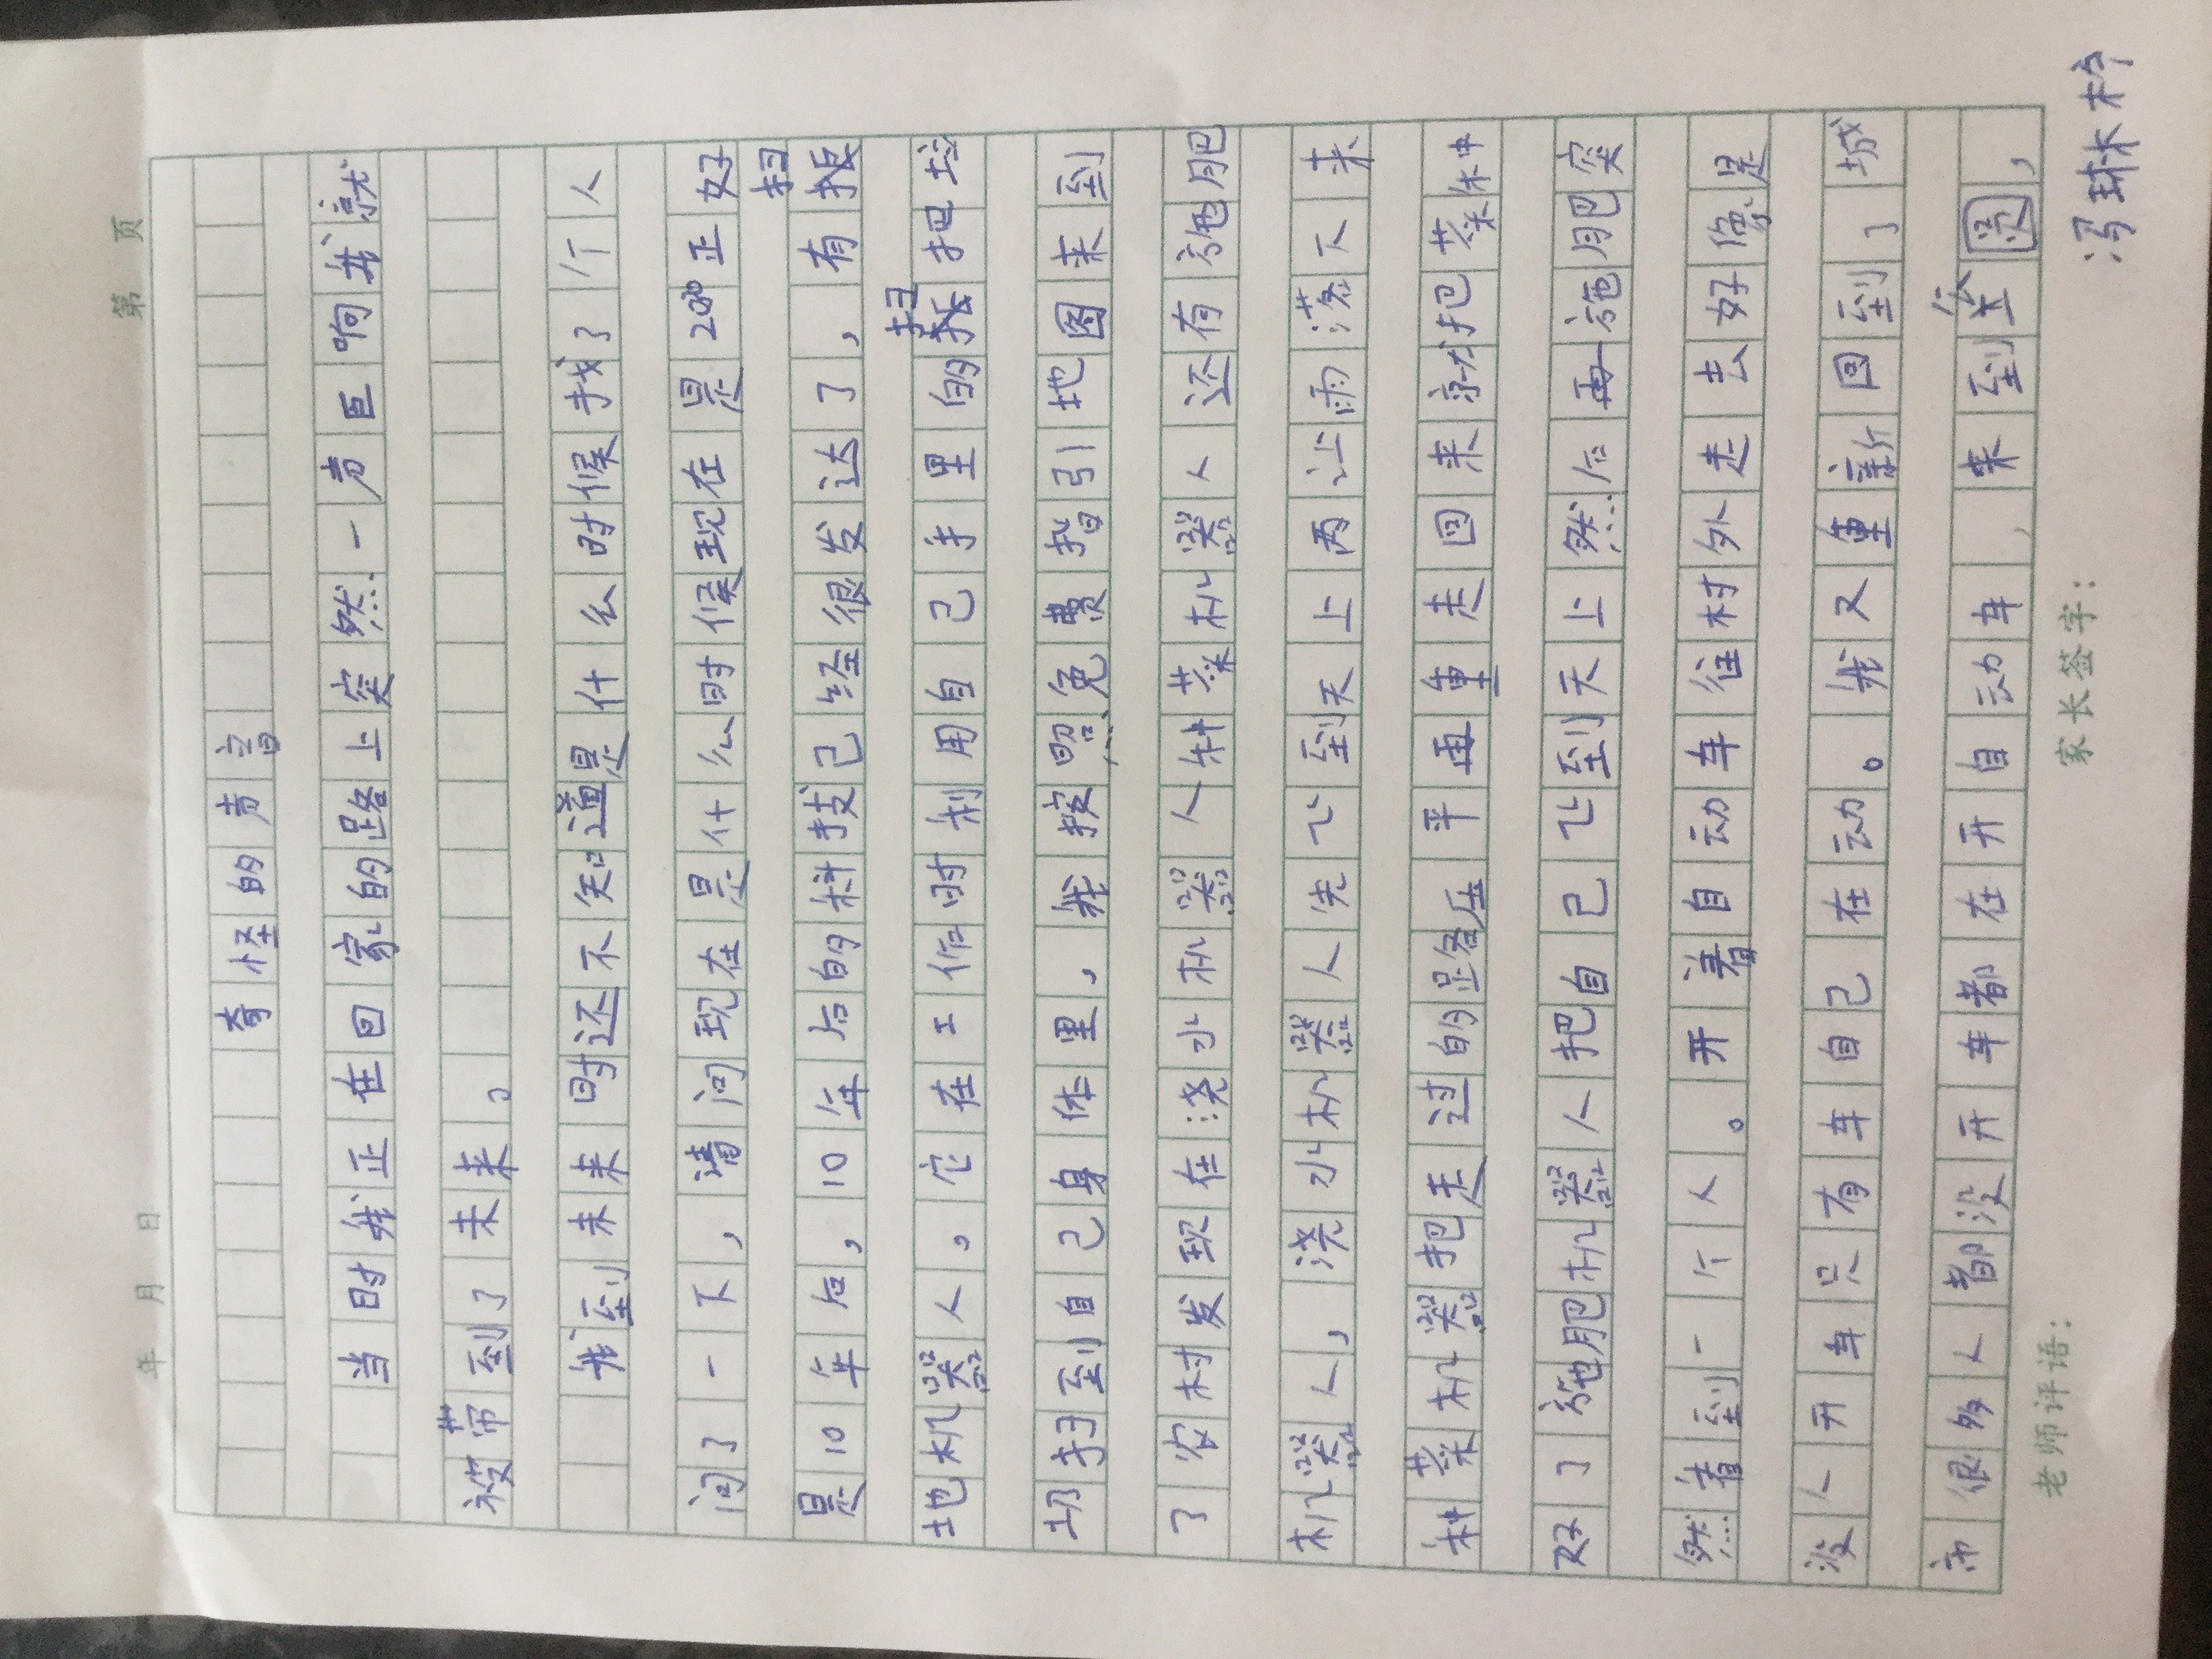 第 页
年 月 日
奇怪的声音
当时我正在回家的路上突然一声巨响我就
被带到了未来。
我到未来时还不知道是什么时候找了个人
问了一下，请问现在是什么时候现在是2030正好
是10年后，10年后的科技己经很发达了，有扫
地机器人。它在工作时利用自己手里的扫把垃
圾扫到自己身体里。我按照免费指引地图来到
了农村发现在浇水机器人种菜机器人还有施肥
机器人，浇水机器人先飞到天上两让雨落下来
种菜机器把走过的路压平再重走回来就把菜种
好了施肥机器人把自己飞到天上然后再施肥突
然看到一个人。开着自动车往村外走去好像是
没人开车只有车自己在动。我又重新回到了城
市很多人都没开车都在开自动车，来到公园，
老师评语：
家长签字：